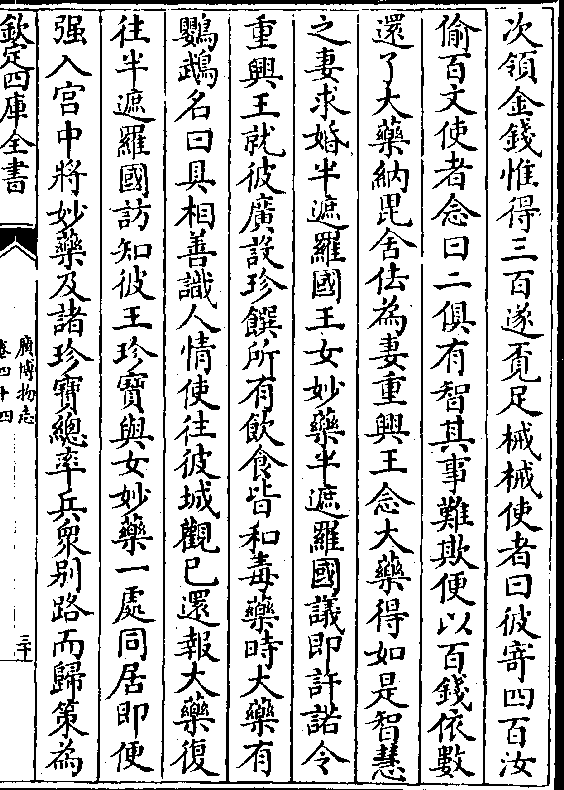 次領金錢惟得三百遂覔足械械使者曰彼寄四百汝
偷百文使者念曰二俱有智其事難欺便以百錢依數
還了大藥納毘舍佉為妻重興王念大藥得如是智慧
之妻求婚半遮羅國王女妙藥半遮羅國議即許諾令
重興王就彼廣設珍饌所有飲食皆和毒藥時大藥有
鸚鵡名曰具相善識人情使往彼城觀已還報大藥復
往半遮羅國訪知彼王珍寶與女妙藥一處同居即便
强入宫中將妙藥及諸珍寶總率兵衆别路而歸策為
欽定四庫全書
廣博物志
卷四十四
三十